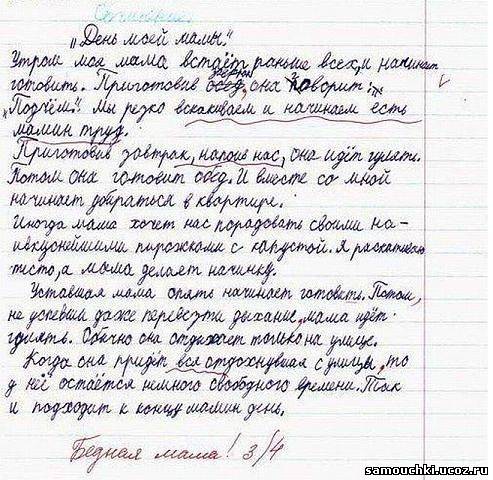 Сочинение.
"День моей мамы."
Утром моя мама встаёт раньше всех, и начинает
готовить. Приготовив завтрак обед, она говорит:
"Подъём". Мы резко вскакиваем и начинаем есть
мамин труд.
Приготовив завтрак, напоив нас, она идёт гулять.
Потом она готовит обед. И вместе со мной
начинает убираться в квартире.
Иногда мама хочет нас порадовать своими на-
ивкуснейшими пирожками с капустой. Я раскатываю
тесто, а мама делает начинку.
Уставшая мама опять начинает готовить. Потом,
не успевши даже перевезти дыхание, мама идёт
гулять. Обычно она отдыхает только на улице.
Когда она придёт вся отдохнувшая с улицы, то
у неё остаётся немного свободного времени. Так
и подходит к концу мамин день.
Бедная мама! 3/4
samouchki.ucoz.ru